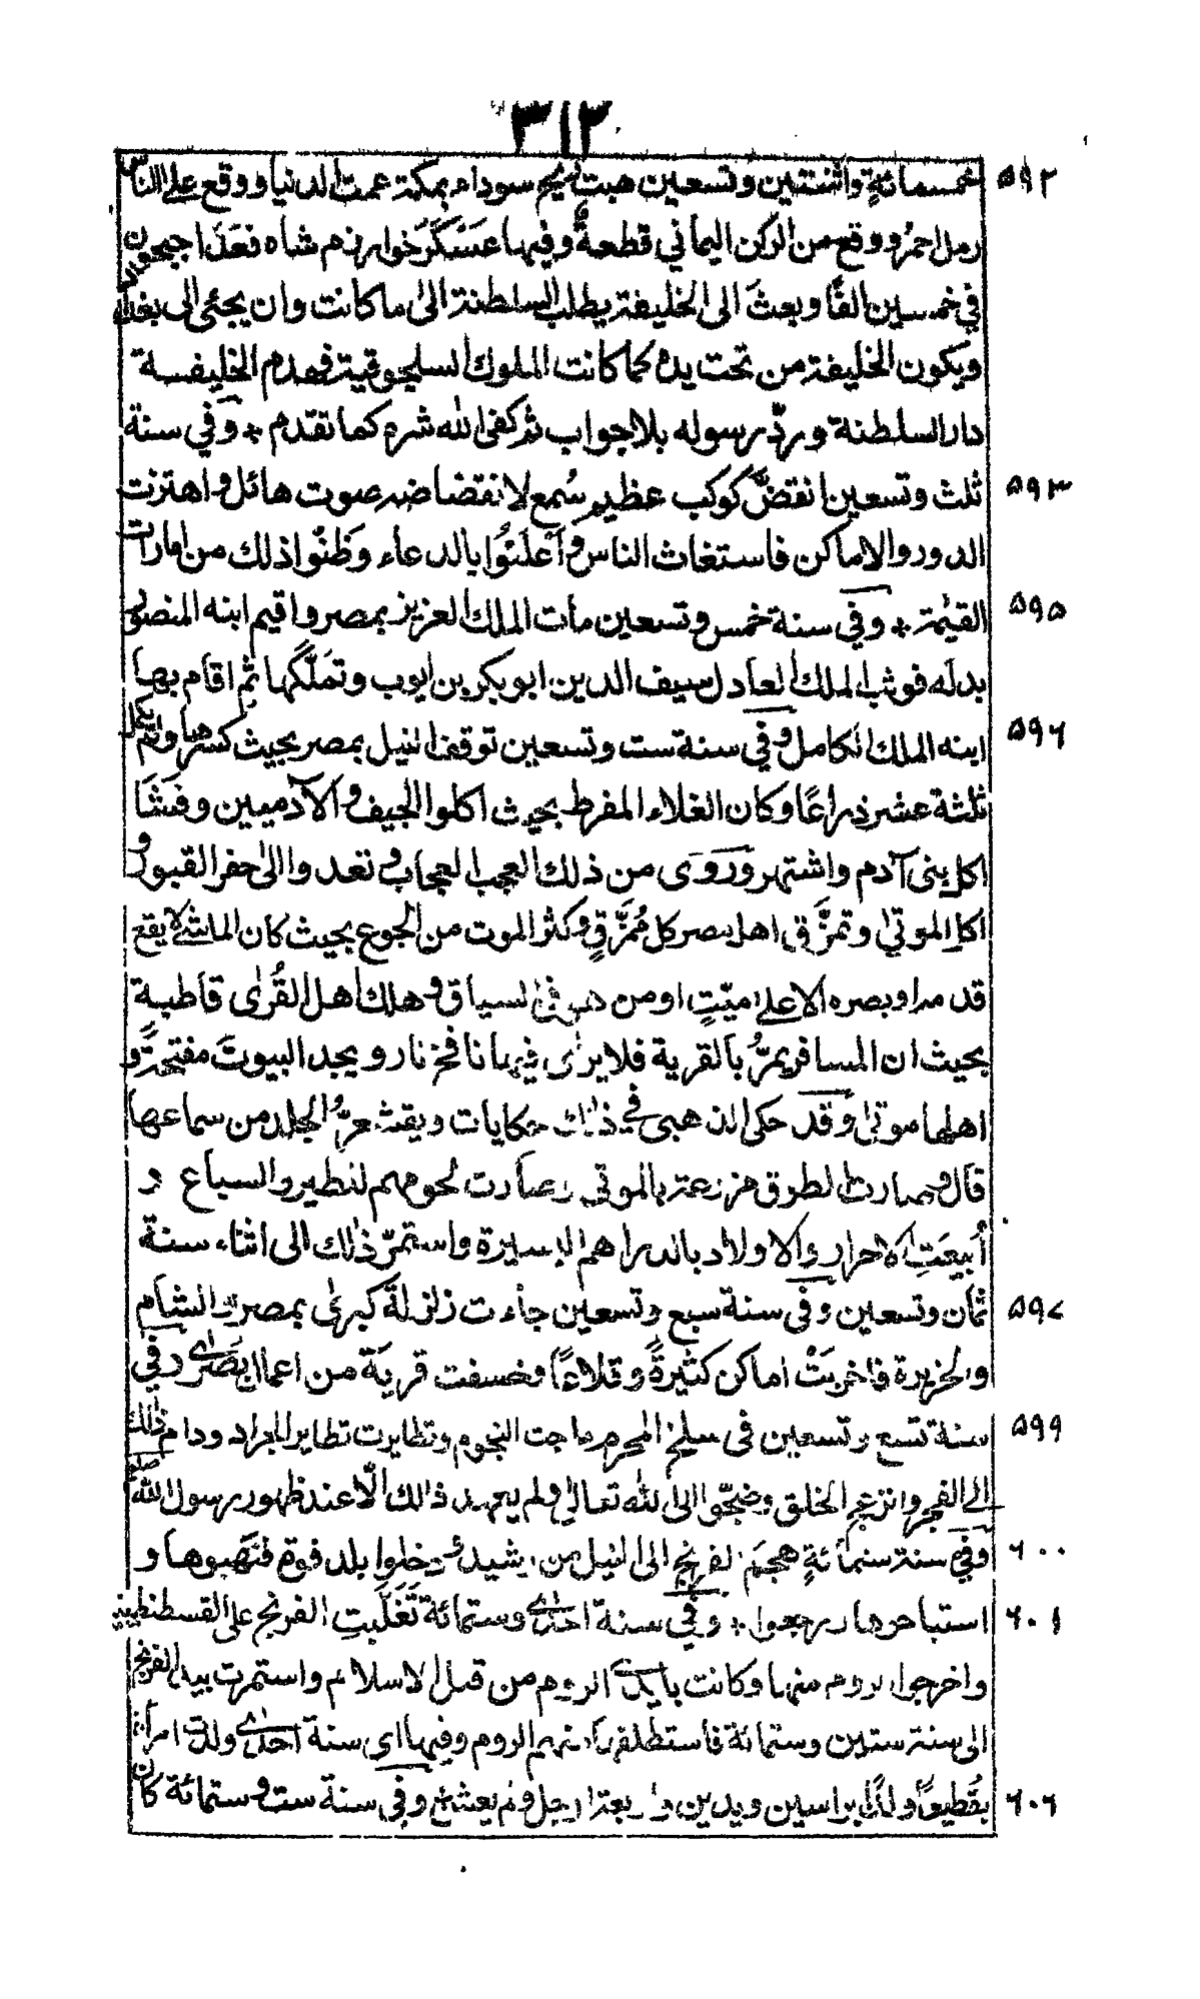 ٣١٢
خمسمائةٍ واثنتين وتسعين هبت ريح سوداء بمكة عمت الدنيا ووقع على الناس ٥٩٢
رمل احمرُ ووقع من الركن اليماني قطعةٌ وفيها عَسْكَرَ خوارزم شاه فعَدَا جيحون
في خمسين الفًا وبعثَ الى الخليفة يطلب السلطنة الىٰ ما كانت وان يجئ الى بغداد
ويكون الخليفة من تحت يده كما كانت الملوك السلجوقية فهدم الخليفـة
دار السلطنة وردّ رسوله بلا جواب ثم كفى الله شره كما تقدم * وفي سنة
ثلث وتسعين انقضَّ كوكب عظيم سُمع لانقضاضه صوت هائل واهتزت ٥٩٣
الدور والاماكن فاستغاث الناس وَاَعلَنُوْا بالدعاء وظَنُّوا ذلك من امارات
القيٰمة * وفي سنة خمس وتسعين مات الملك العزيز بمصر واقيم ابنه المنصور ٥٩٥
بدله فوثب الملك العادل سيف الدين ابو بكر بن ايوب وتمَلَّكَها ثم اقام بها
ابنه الملك الكامل وفي سنة ست وتسعين توقف النيل بمصر بحيث كسرها ولم يكمل ٥٩٦
ثلثة عشر ذراعًا وكان الغلاء المفرط بحيث اكلوا الجيف والآدميين وفَشَا
اكل بنى آدم واشتهر ورَوىٰ من ذلك العجب العجاب وتعدوا الىٰ حفر القبور و
اكل الموتىٰ وتمزَّق اهل مصر كل مُمَزَّقٍ وكثر الموت من الجوع بحيث كان الماشى لا يقع
قدمه او بصره الا علىٰ ميّتٍ او من هو في السياق وهلك اهل القُرىٰ قاطبة
بحيث ان المسافر يمرُّ بالقرية فلا يرىٰ فيها نافخ نار ويجد البيوتَ مفتحةً و
اهلها موتىٰ وقد حكى الذهبى في ذلك حكايات ويقشعرُّ الجلد من سماعها
قال وصارت الطرق مزرعة بالموتى وصارت لحومهم للطير والسباع و
أبيعَتِ الاحرار والاولاد بالدراهم اليسيرة واستمرّ ذلك الى اثناء سنة
ثمان وتسعين وفى سنة سبع وتسعين جاءت زلزلة كبرىٰ بمصر والشام ٥٩٧
والجزيرة فاخربَتْ اماكن كثيرةً وقلاعًا وخسفت قرية من اعمال بصرٰى وفي
سنة تسع وتسعين فى سلخ المحرم ماجت النجوم وتطايرت تطاير الجراد ودام ذلك ٥٩٩
الى الفجر وانزعج الخلق وضجّوا الى الله تعالىٰ ولم يعهد ذالك الّا عند ظهور رسول الله صلعم
وفي سنة ستمائةٍ هجمَ الفرنج الى النيل من رشيد ودخلوا بلد فوة فنَهَبوها و ٦٠٠
استباحوها ورجعوا * وفي سنة احدٰى وستمائة تَغَلَّبتِ الفرنج على القسطنطينية ٦٠١
واخرجوا الروم منها وكانت بايدى الروم من قبل الاسلام واستمرت بيد الفرنج
الى سنة ستين وستمائة فاستطلقها منهم الروم وفيها اى سنة احدٰى ولدت امرأة
بقُطيعًا ولدًا براسين ويدين واربعة ارجل ولم يعش وفي سنة ست وستمائة كان ٦٠٦